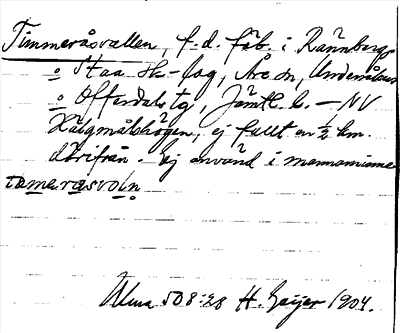 Timmeråsvallen, f.d. fäb. i Rännbergs
o Staa sk-lag, Åre sn, Undersåkers
o Offerdals tg, Jämtl. l. – NV
Hälgmålshögen, ej fullt en ½ km.
därifrån. – Ej använd i mannaminne
tomerasvoln
Ulma 508:28 H. Geijer 1904.